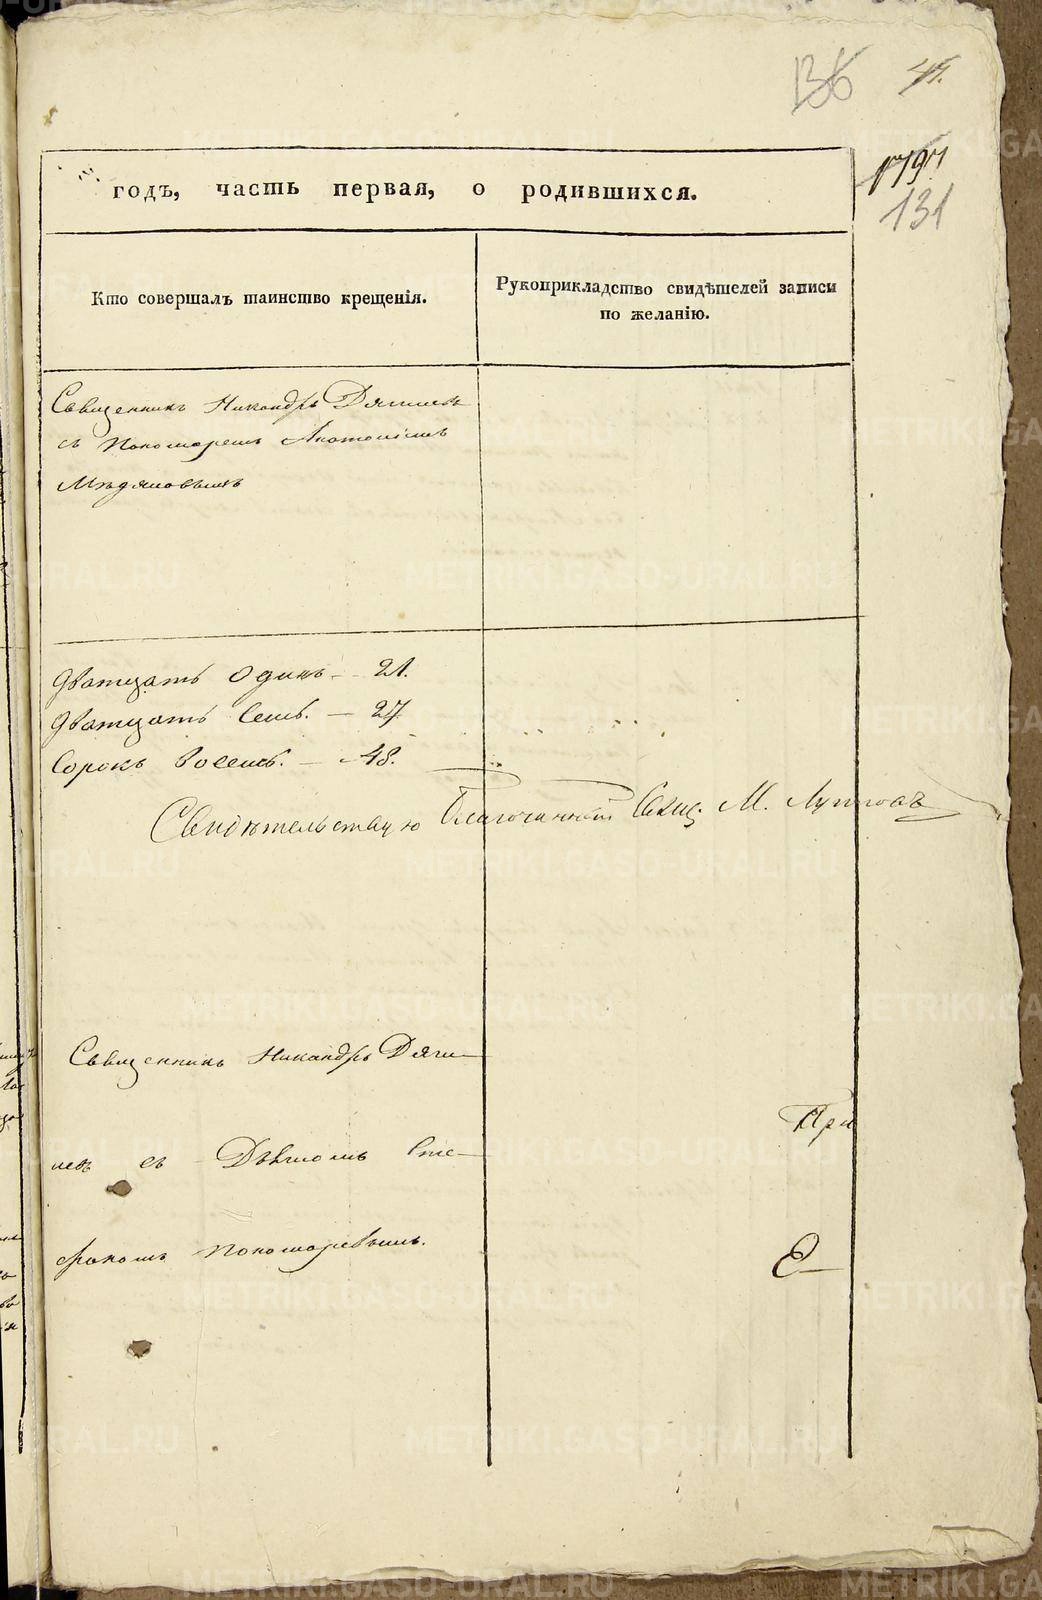 136
47.
1797
131
годъ, часть первая, о родившихся.
Кто совершалъ таинство крещенія.
Рукоприкладство свидѣтелей записи
по желанію.
Священникъ Никандръ Дягилевъ
съ Пономаремъ Анатоліемъ
Мѣдяновымъ
Дватцать Одинъ - 21.
Дватцать Семь. - 27
Сорокъ Восемь. - 48.
Свидѣтельствую Благочинный Свящ. М. Лупповъ
Священникъ Никандръ Дяги-
левъ съ Дьякомъ Сте-
фаномъ Пономаревымъ.
При
Е-
METRIKI.GASO-URAL.RU